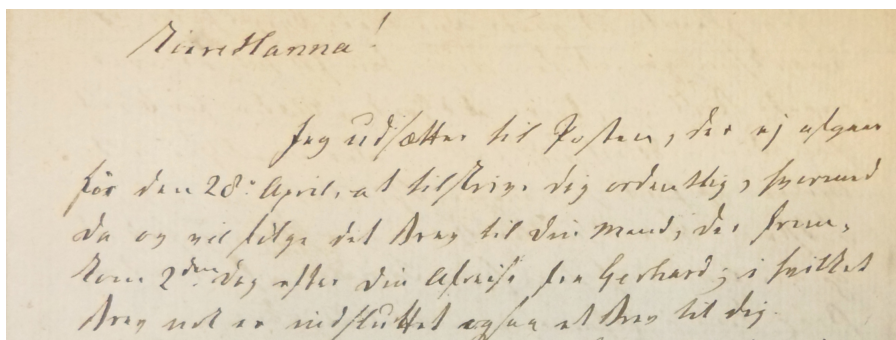 Kiære Hanna!
Jeg udsætter til Posten, der ej afgaar
før den 28. April, at tilskrive dig ordentlig, hvormed
da og vil følge det Brev til din Mand, der frem-
kom 2den Dag efter din Afreise fra Gerhard; i hvilket
Brev nok er indsluttet ogsaa et Brev til dig.